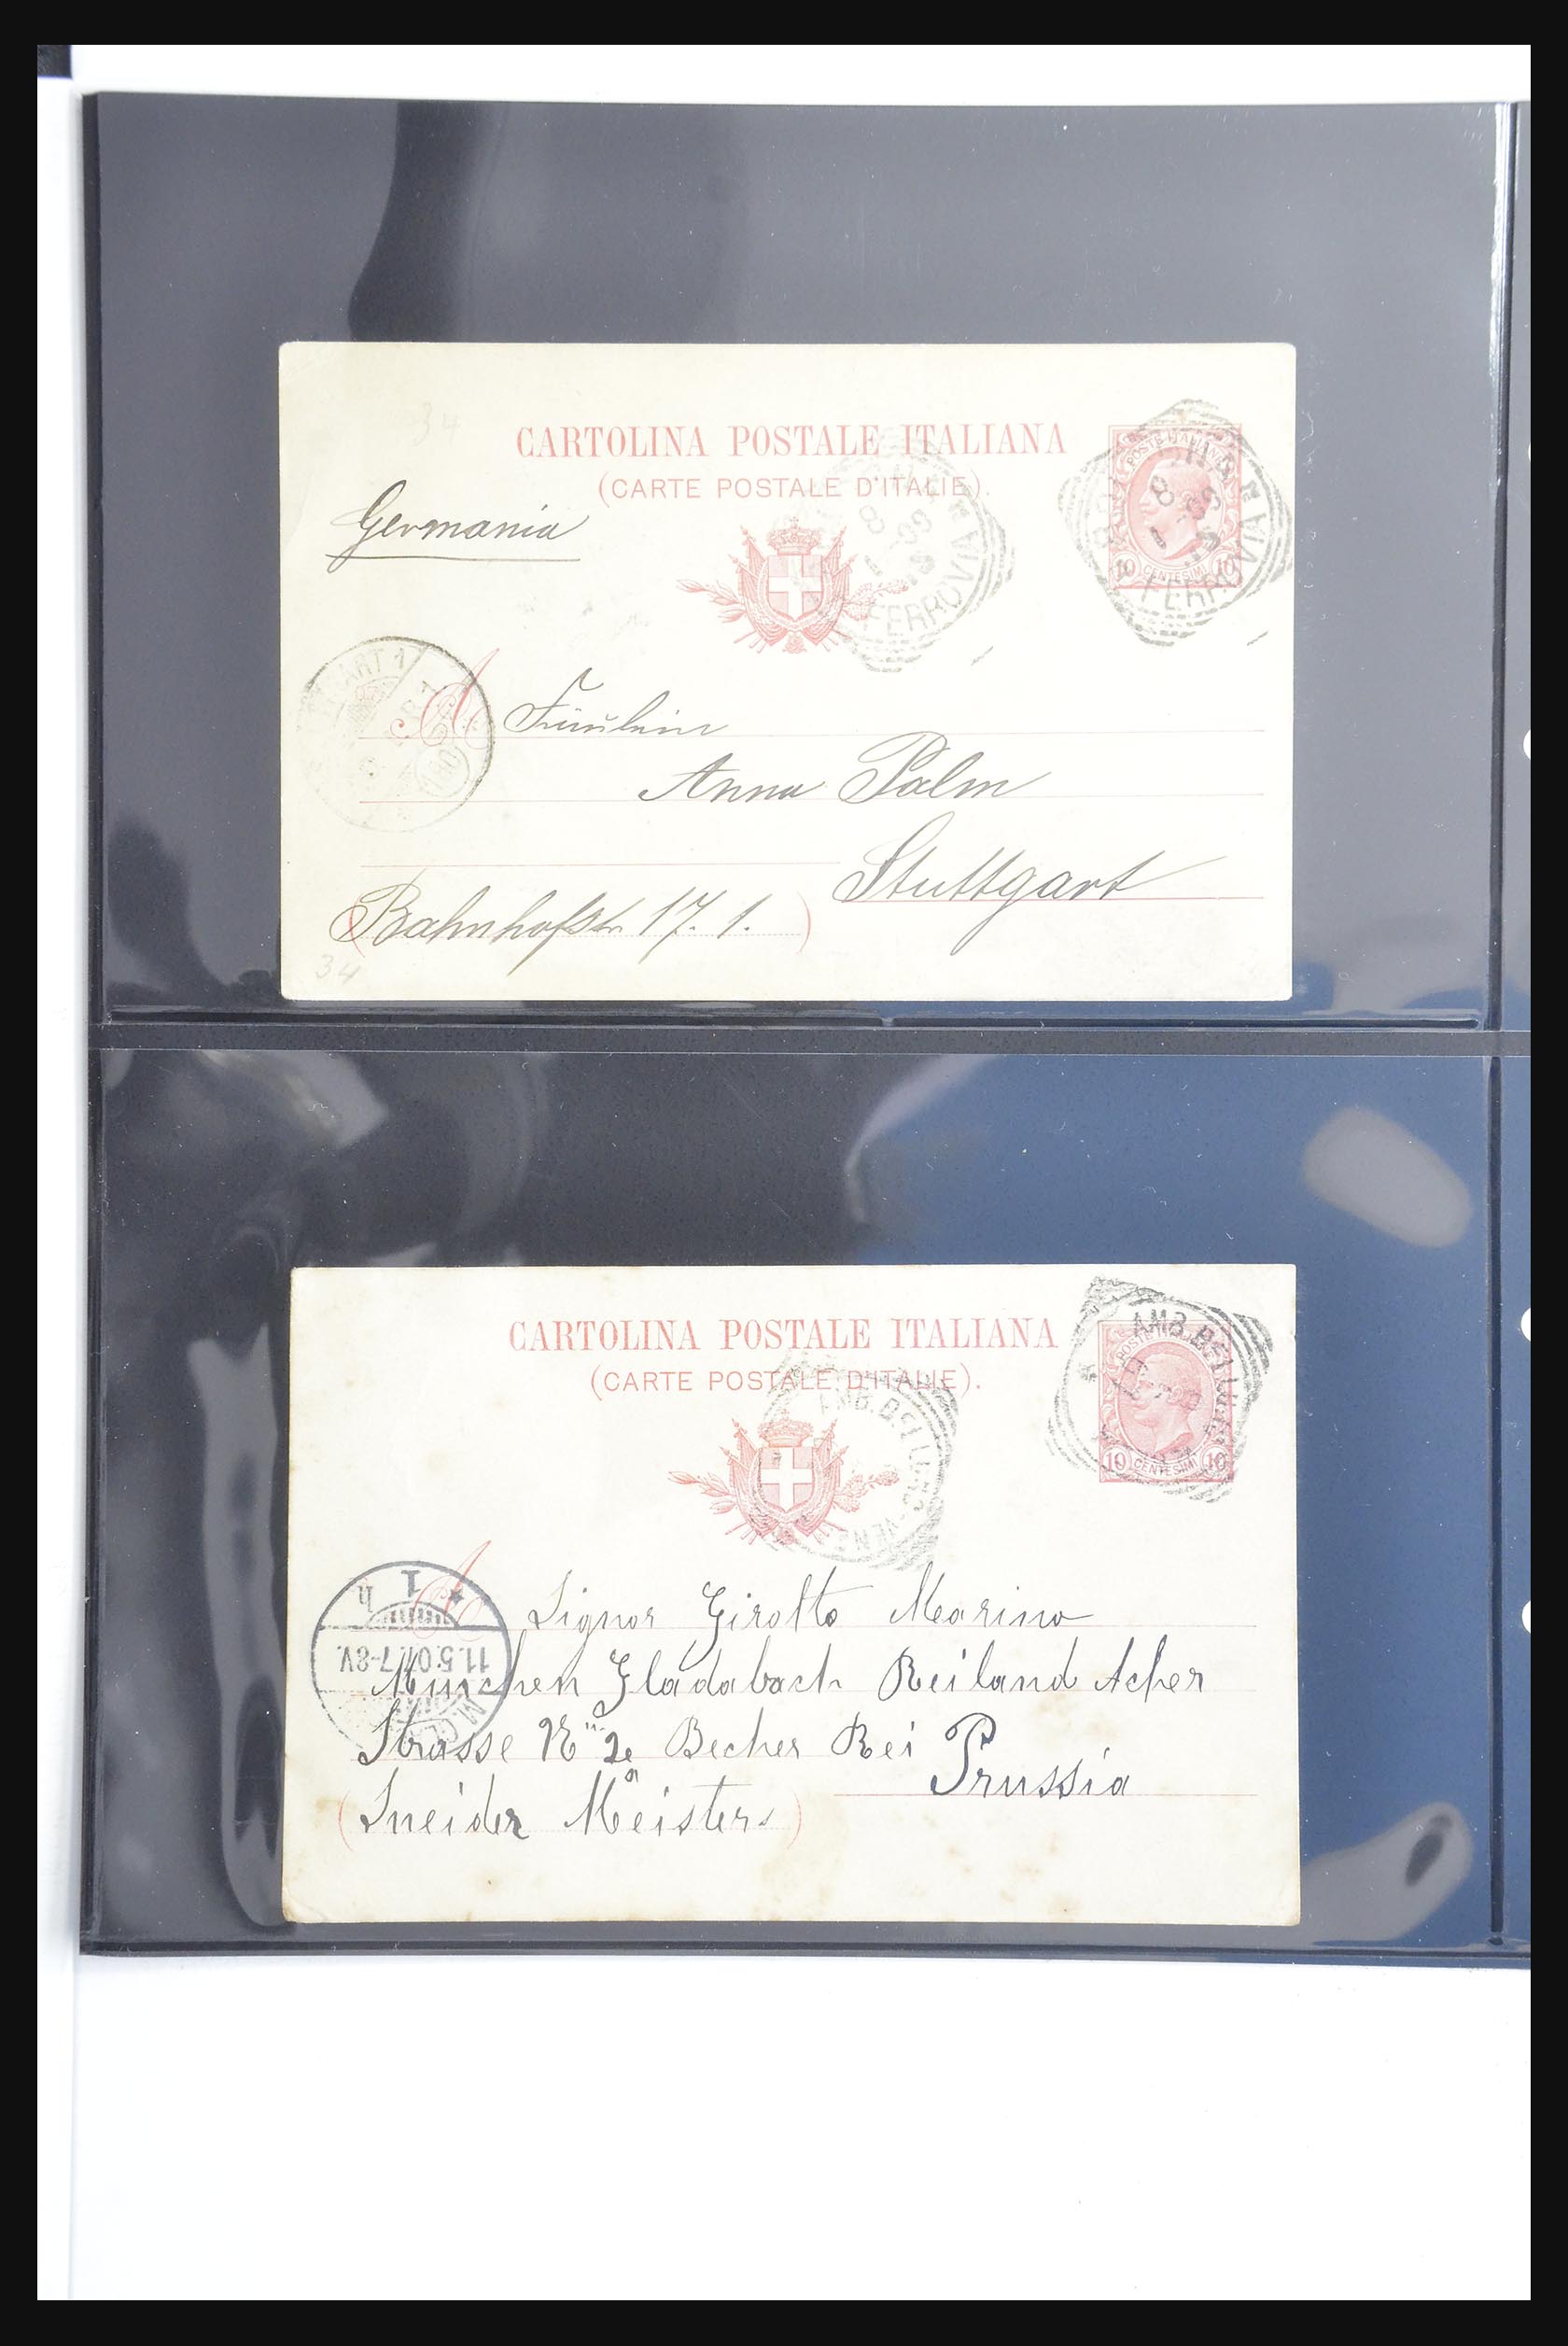 34
CARTOLINA POSTALE ITALIANA
(CARTE POSTALE D'ITALIE).
POSTE ITALIANE
10 CENTESIMI 10
FERROVIA
FERROVIA
Germania
A Fräulein
Anna Palm
Stuttgart
(Bahnhofstr 17. 1.)
34
CARTOLINA POSTALE ITALIANA
(CARTE POSTALE D'ITALIE).
AMB. BELLUNO
10 CENTESIMI 10
AMB. BELLUNO-VEN
A Signor Girotto Marino
11.5.07.7-8V.
München Gladabach Reiland Acher
Strasse No 2e Becher Rei Prussia
(Sneider Meister)